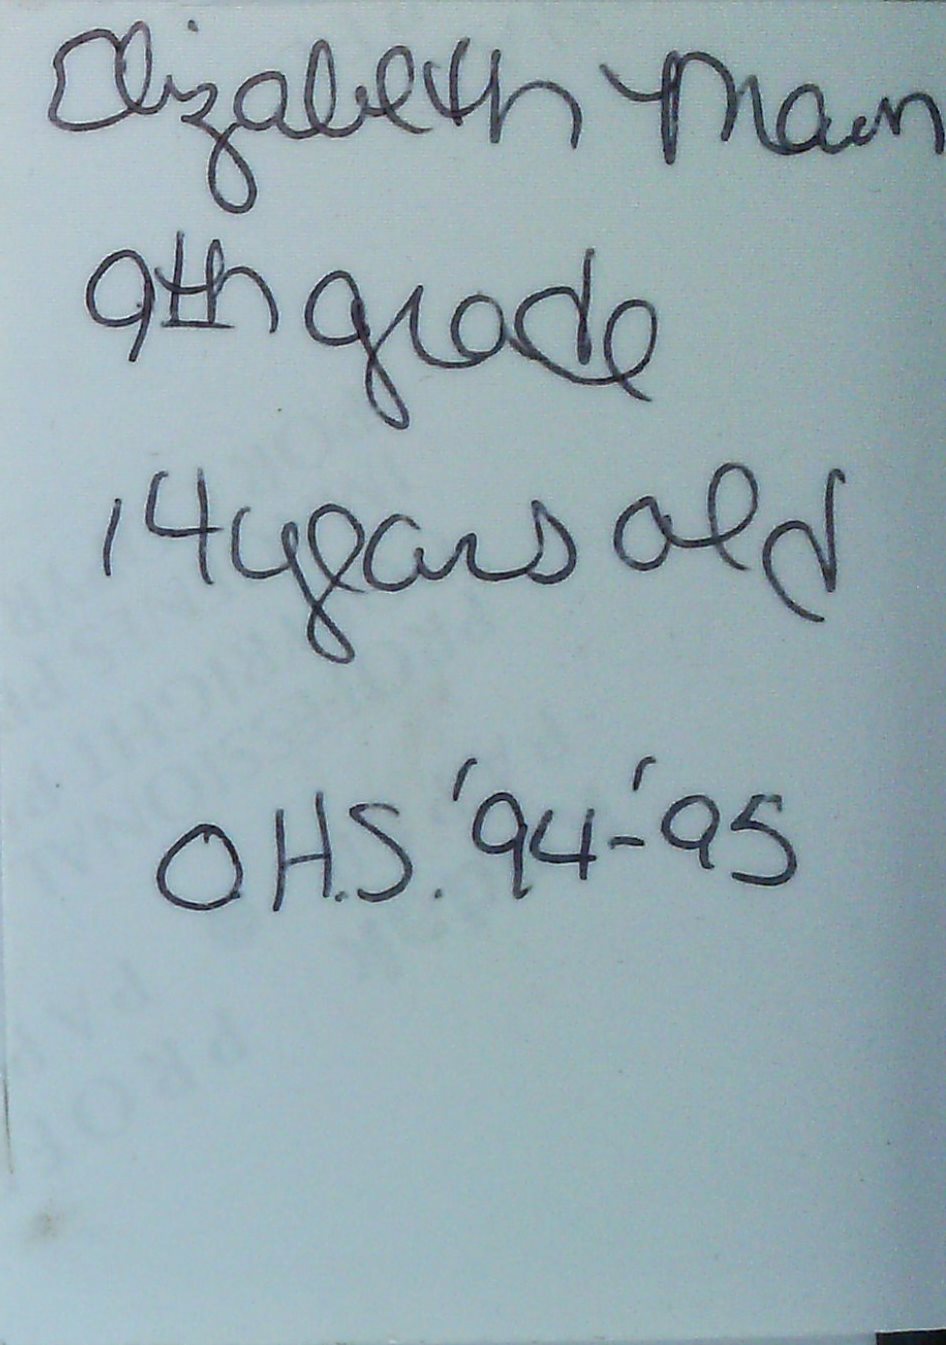 Elizabeth Main
9th grade
14 years old
O.H.S. '94-'95